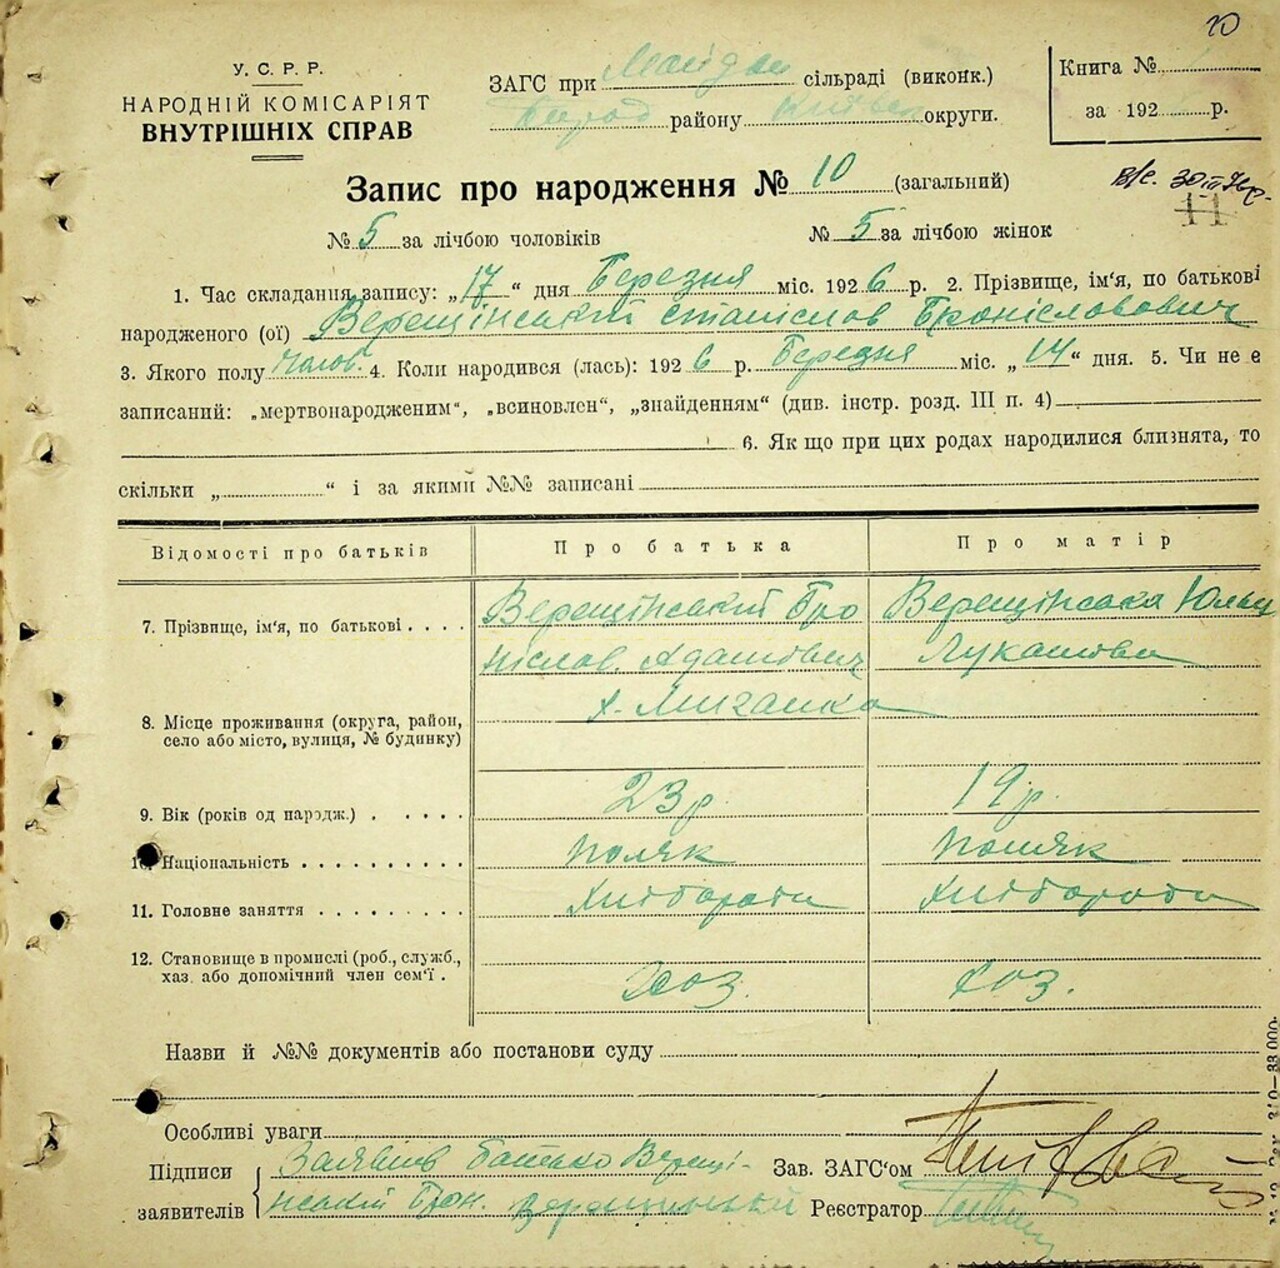 10
У. С. Р. Р.
НАРОДНІЙ КОМІСАРІЯТ
ВНУТРІШНІХ СПРАВ
ЗАГС при Майдан сільраді (виконк.)
району округи.
Книга №
за 192 р.
Запис про народження № 10 (загальний)
11
№ 5 за лічбою чоловіків № 5 за лічбою жінок
1. Час складання запису: „17“ дня Березня міс. 1926 р. 2. Прізвище, ім‘я, по батькові
народженого (ої) Верещінський Станіслав Броніславович
3. Якого полу Чолов. 4. Коли народився (лась): 1926 р. Березня міс. „14“ дня. 5. Чи не є
записаний: „мертвонародженим“, „всиновлен“, „знайденням“ (див. інстр. розд. III п. 4)
6. Як що при цих родах народилися близнята, то
скільки „ “ і за якими №№ записані
Відомості про батьків Про батька Про матір
7. Прізвище, ім‘я, по батькові . . . . Верещінський Бро Верещінська
ніслав. Адамович Лукашова
8. Місце проживання (округа, район,
село або місто, вулиця, № будинку)
х.
9. Вік (років од народж.) . . . . . 23 р. 19 р.
10. Національність . . . . . . . . . . поляк поляк
11. Головне заняття . . . . . . . . . Хлібороб Хлібороб
12. Становище в промислі (роб., служб.,
хаз. або допомічний член сем‘ї . хоз. хоз.
Назви й №№ документів або постанови суду
Особливі уваги
Підписи Заявив батько Верещі-
Зав. ЗАГС‘ом
заявителів нський Брон. Верещинский Реєстратор